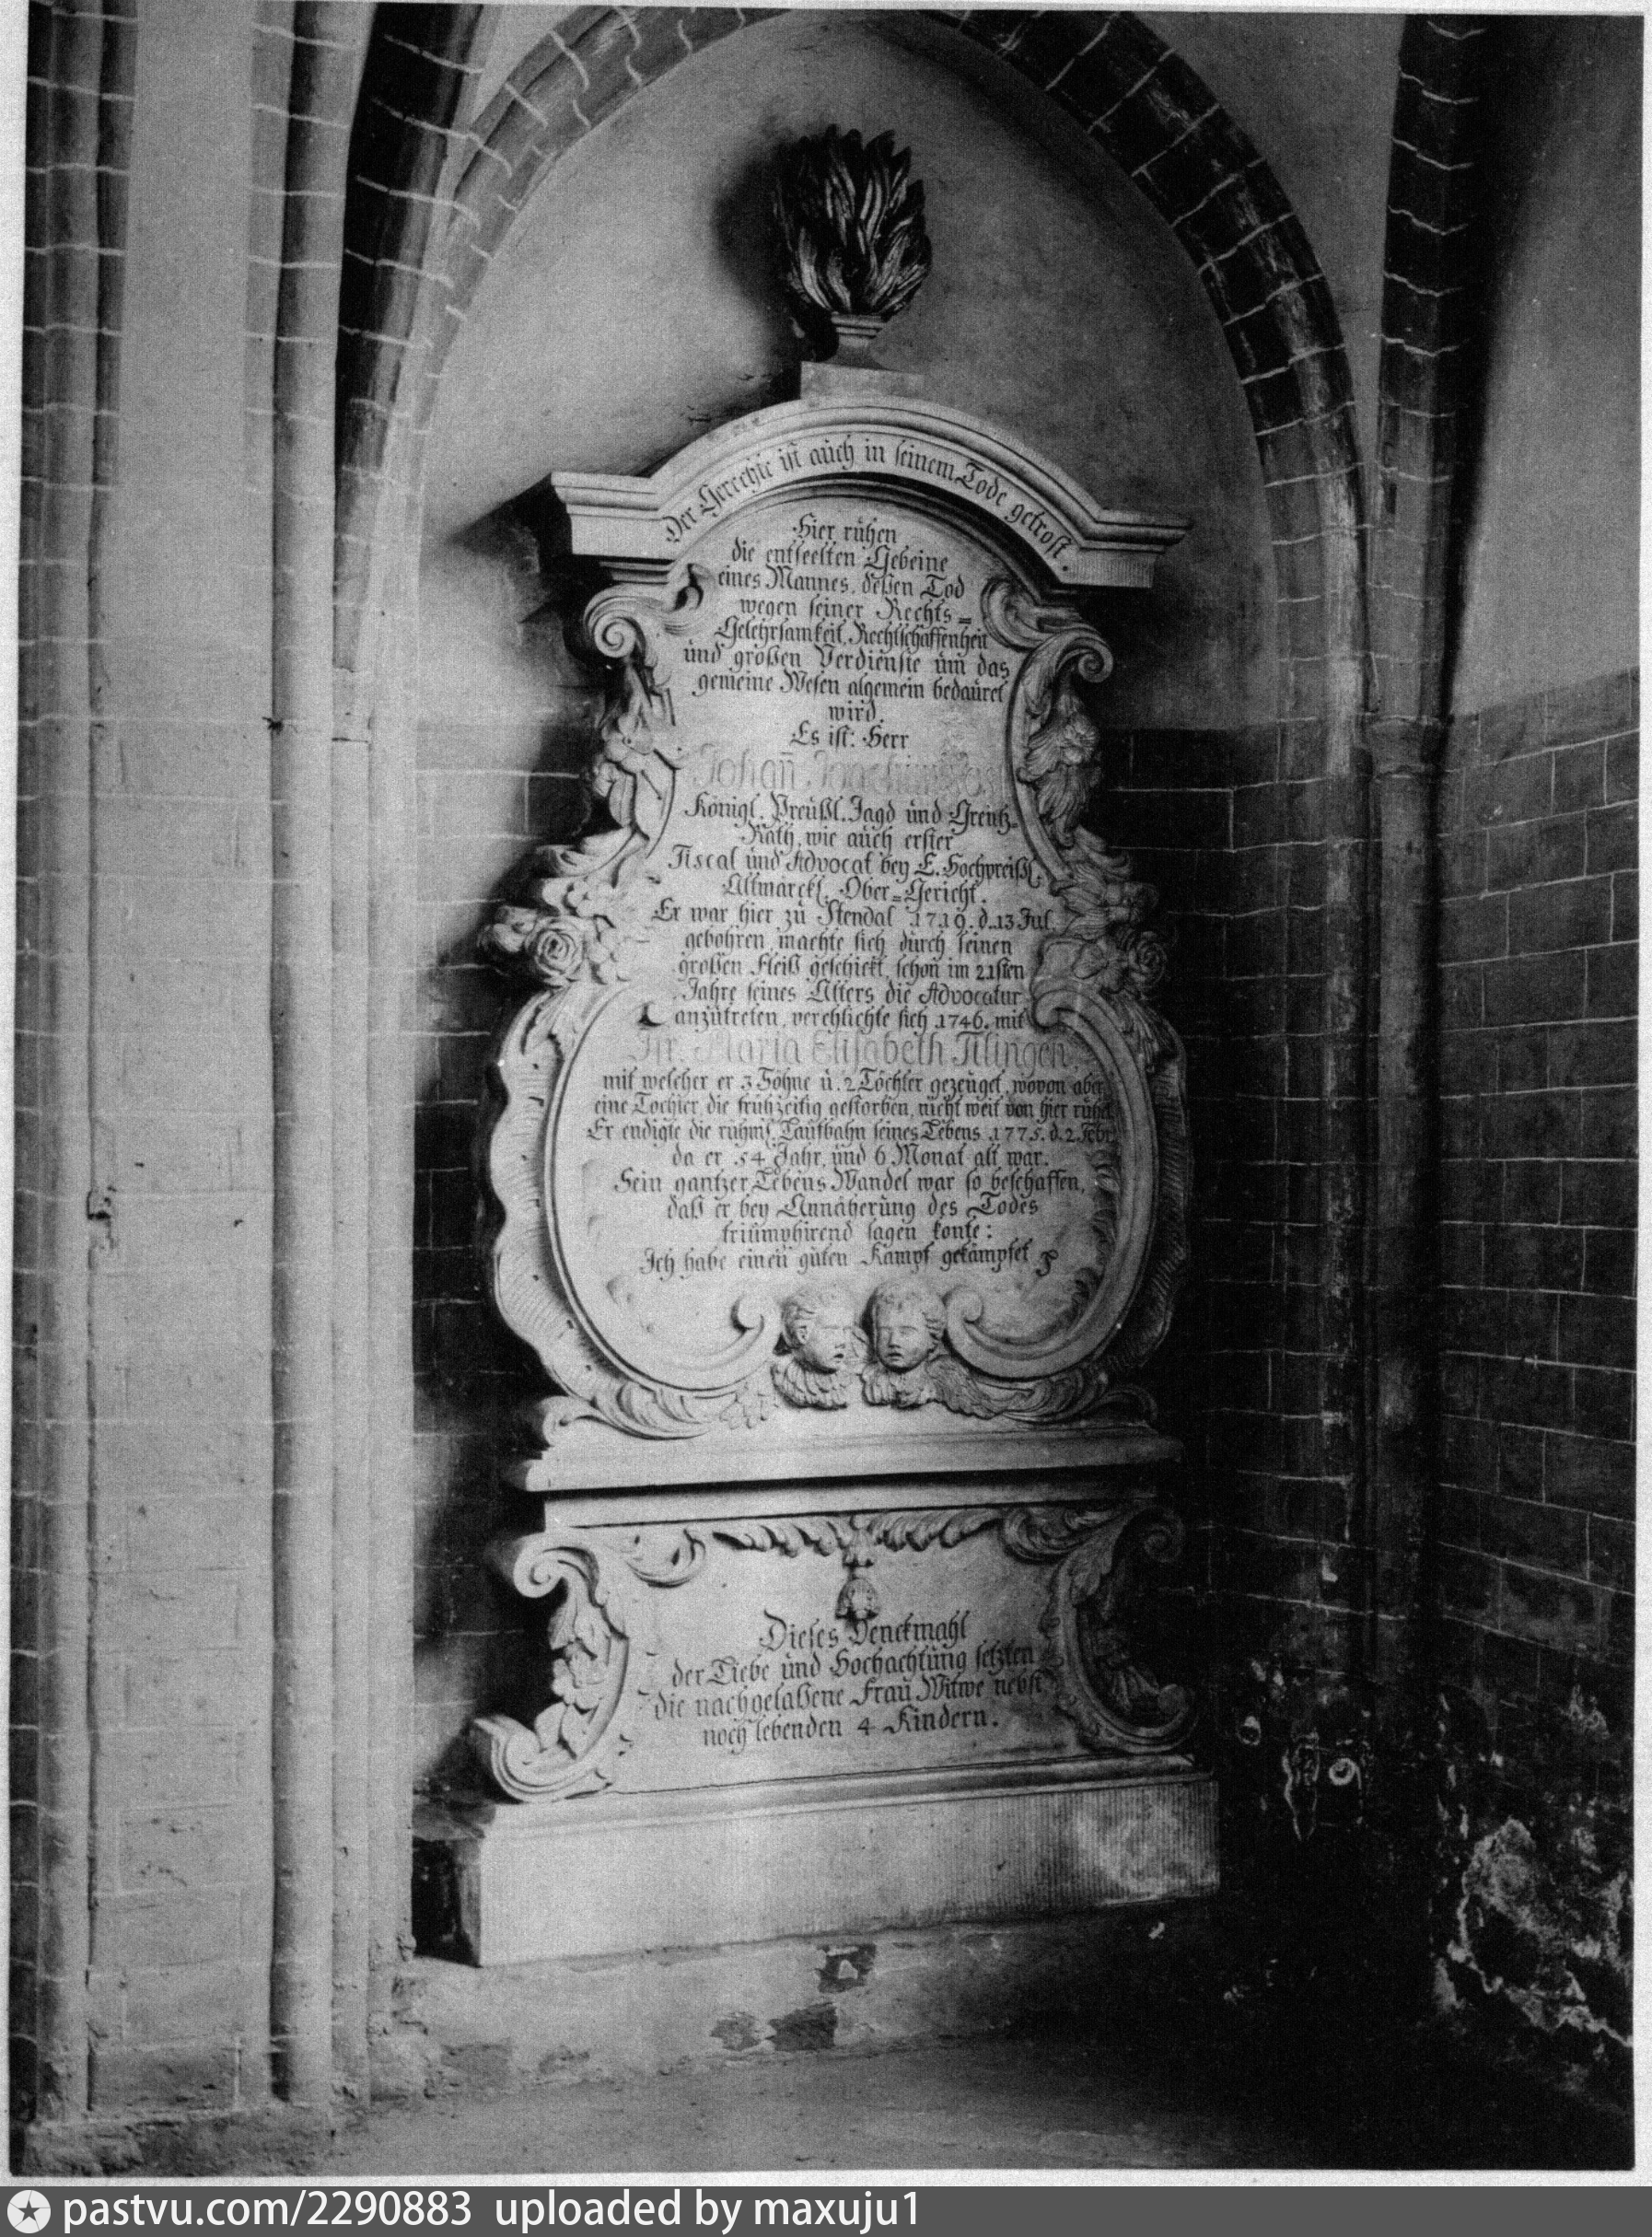 Der Gerechte ist auch in seinem Tode getrost.
Hier rühen
die entseelten Gebeine
eines Mannes, deßen Tod
wegen seiner Rechts=
Gelehrsamkeit, Rechtschaffenheit
und großen Verdienste um das
gemeine Wesen algemein bedaüret
wird.
Es ist: Herr
Johan̄ Joachim
Königl. Preüßl. Jagd und Grentz-
Rath, wie auch erster
Fiscal und Advocat bey E. Hochpreißl.
Altmärckl. Ober=Gericht.
Er war hier zü Stendal 1719. d. 13 Jul.
gebohren, machte sich dürch seinen
großen Fleiß geschickt, schon im 21sten
Jahre seines Alters die Advocatur
anzütreten, verehlichte sich 1746. mit
Fr. Maria Elisabeth Tilingen,
mit welcher er 3 Söhne ü. 2 Töchter gezeüget, wovon aber
eine Tochter, die frühzeitig gestorben, nicht weit von hier rühet.
Er endigte die rühml. Laüfbahn seines Lebens 1775. d. 2. Febr.
da er 54 Jahr, und 6 Monat alt war.
Sein gantzer Lebens Wandel war so beschaffen,
daß er bey Annäherüng des Todes
triümphirend sagen konte:
Ich habe einen güten Kampf gekämpfet
Dieses Denckmahl
der Liebe und Hochachtüng setzten
die nachgelaßene Fraü Witwe nebst
noch lebenden 4 Kindern.
pastvu.com/2290883 uploaded by maxuju1